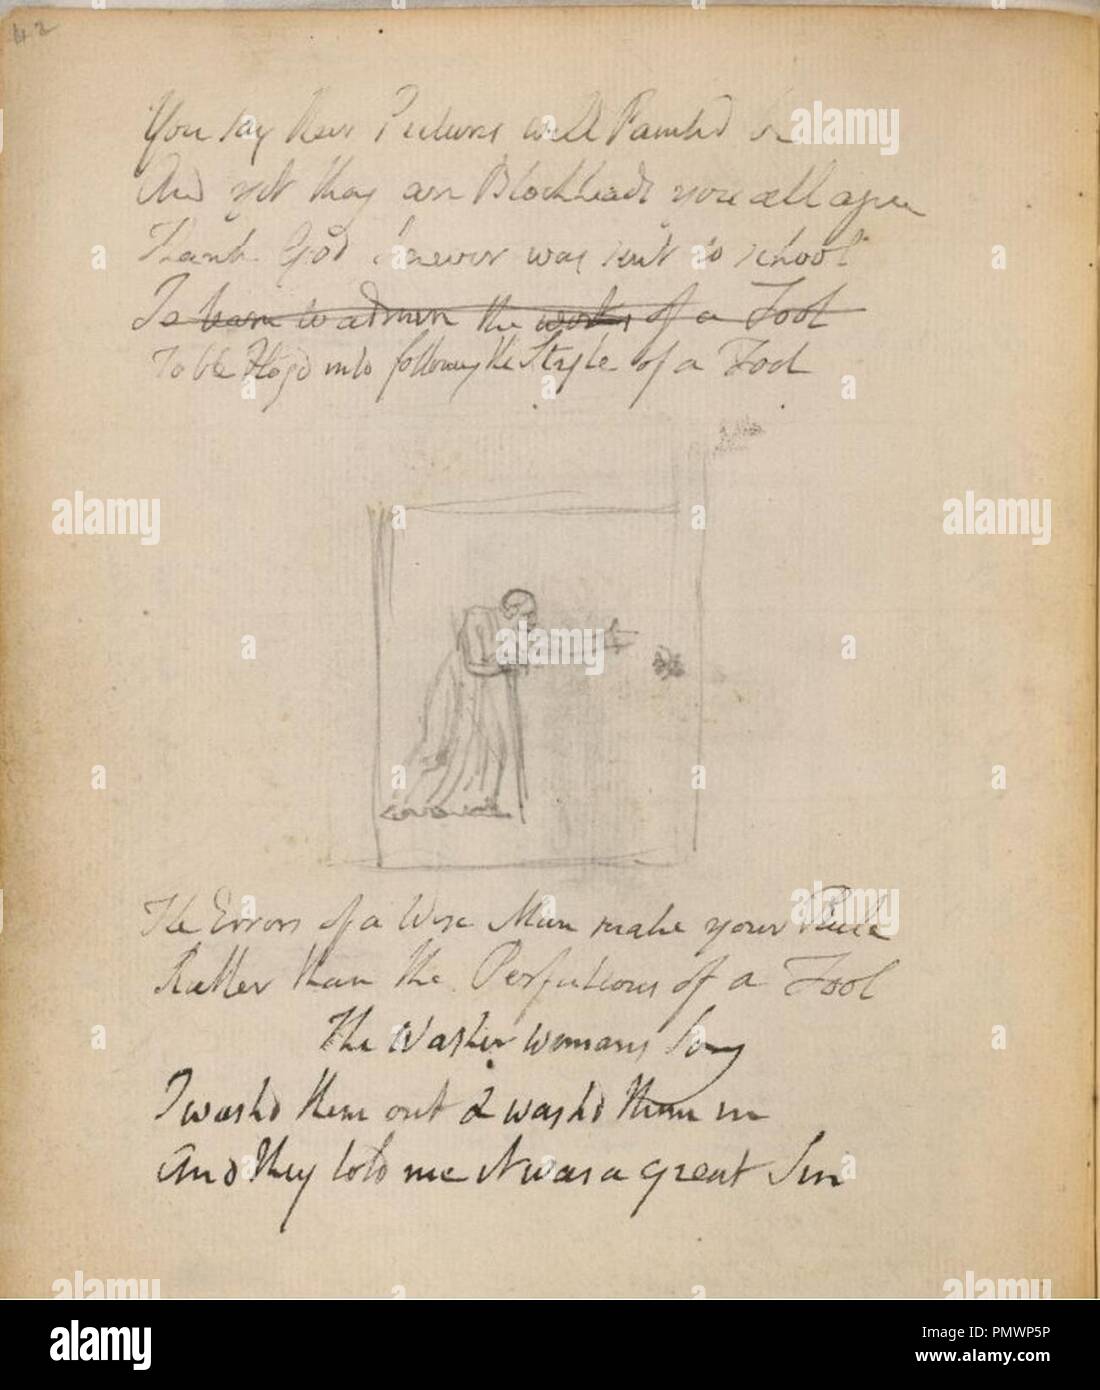 42
You say their Pictures well Painted be
And yet they are Blockheads you all agree
Thank God I never was sent to school
To learn to admire the works of a Fool
To be Flogd into following the Style of a Fool
The Errors of a Wise Man make your Rule
Rather than the Perfections of a Fool
The Washer womans Song
I washd them out & washd them in
And they told me it was a great Sin
alamy
Image ID: PMWP5P
www.alamy.com